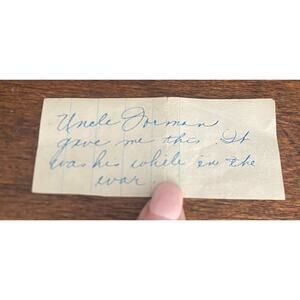 Uncle Dorman
gave me this. It
was his while in the
war